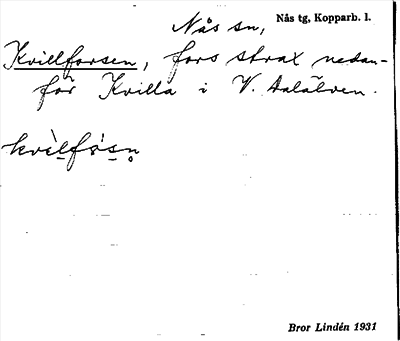 Nås sn, Nås tg, Kopparb. l.
Kvillforsen, fors strax nedan-
för Kvilla i V. Dalälven.
kvìlfȧsn̥
Bror Lindén 1931